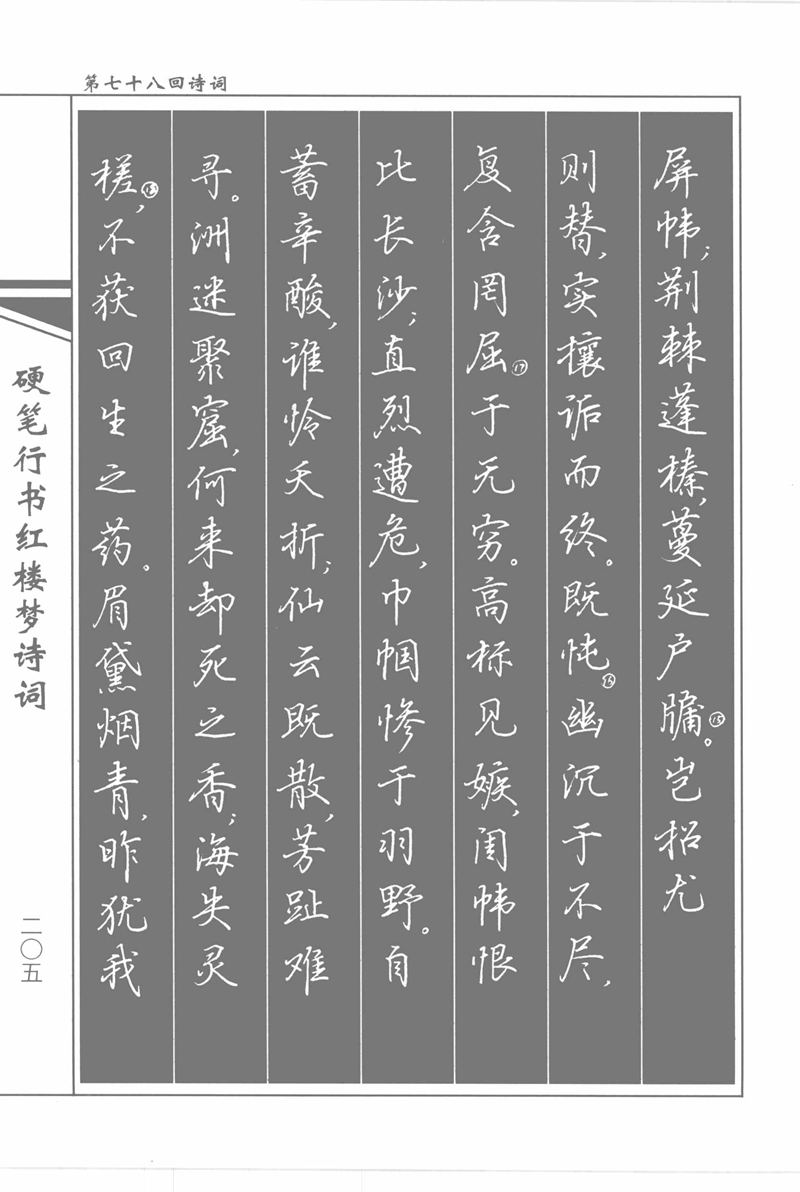 第七十八回诗词
屏帏；荆棘蓬榛，蔓延户牖⑮。岂招尤
则替，实攘诟而终。既忳⑯幽沉于不尽，
复含罔屈⑰于无穷。高标见嫉，闺帏恨
比长沙；直烈遭危，巾帼惨于羽野。自
蓄辛酸，谁怜夭折；仙云既散，芳趾难
寻。洲迷聚窟，何来却死之香；海失灵
槎⑱，不获回生之药。眉黛烟青，昨犹我
硬笔行书红楼梦诗词
二〇五